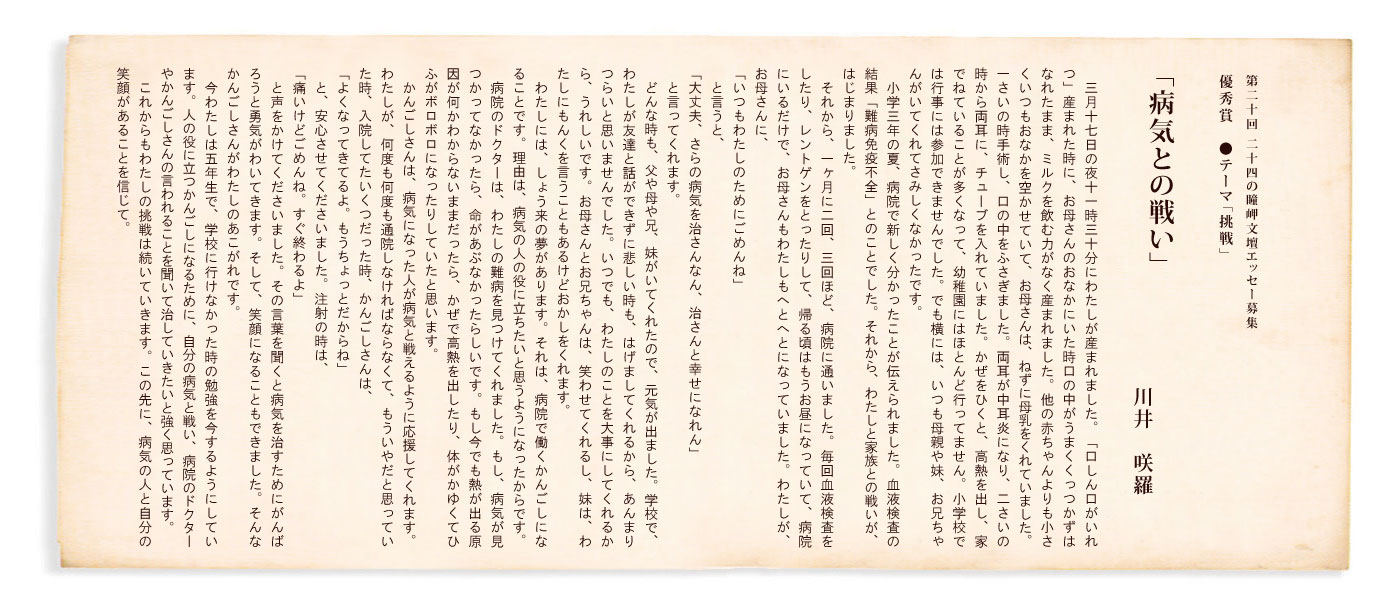 第二十回 二十四の瞳岬文壇エッセー募集
優秀賞 ●テーマ「挑戦」
「病気との戦い」
川井 咲羅
三月十七日の夜十一時三十分にわたしが産まれました。「口しん口がいれ
つ」産まれた時に、お母さんのおなかにいた時口の中がうまくくっつかずは
なれたまま、ミルクを飲む力がなく産まれました。他の赤ちゃんよりも小さ
くいつもおなかを空かせていて、お母さんは、ねずに母乳をくれていました。
一さいの時手術し、口の中をふさぎました。両耳が中耳炎になり、二さいの
時から両耳に、チューブを入れていました。かぜをひくと、高熱を出し、家
でねていることが多くなって、幼稚園にはほとんど行ってません。小学校で
は行事には参加できませんでした。でも横には、いつも母親や妹、お兄ちゃ
んがいてくれてさみしくなかったです。
小学三年の夏、病院で新しく分かったことが伝えられました。血液検査の
結果「難病免疫不全」とのことでした。それから、わたしと家族との戦いが、
はじまりました。
それから、一ヶ月に二回、三回ほど、病院に通いました。毎回血液検査を
したり、レントゲンをとったりして、帰る頃はもうお昼になっていて、病院
にいるだけで、お母さんもわたしもへとへとになっていました。わたしが、
お母さんに、
「いつもわたしのためにごめんね」
と言うと、
「大丈夫、さらの病気を治さんなん、治さんと幸せになれん」
と言ってくれます。
どんな時も、父や母や兄、妹がいてくれたので、元気が出ました。学校で、
わたしが友達と話ができずに悲しい時も、はげましてくれるから、あんまり
つらいと思いませんでした。いつでも、わたしのことを大事にしてくれるか
ら、うれしいです。お母さんとお兄ちゃんは、笑わせてくれるし、妹は、わ
たしにもんくを言うこともあるけどおかしをくれます。
わたしには、しょう来の夢があります。それは、病院で働くかんごしにな
ることです。理由は、病気の人の役に立ちたいと思うようになったからです。
病院のドクターは、わたしの難病を見つけてくれました。もし、病気が見
つかってなかったら、命があぶなかったらしいです。もし今でも熱が出る原
因が何かわからないままだったら、かぜで高熱を出したり、体がかゆくてひ
ふがボロボロになったりしていたと思います。
かんごしさんは、病気になった人が病気と戦えるように応援してくれます。
わたしが、何度も何度も通院しなければならなくて、もういやだと思ってい
た時、入院してたいくつだった時、かんごしさんは、
「よくなってきてるよ。もうちょっとだからね」
と、安心させてくださいました。注射の時は、
「痛いけどごめんね。すぐ終わるよ」
と声をかけてくださいました。その言葉を聞くと病気を治すためにがんば
ろうと勇気がわいてきます。そして、笑顔になることもできました。そんな
かんごしさんがわたしのあこがれです。
今わたしは五年生で、学校に行けなかった時の勉強を今するようにしてい
ます。人の役に立つかんごしになるために、自分の病気と戦い、病院のドクター
やかんごしさんの言われることを聞いて治していきたいと強く思っています。
これからもわたしの挑戦は続いていきます。この先に、病気の人と自分の
笑顔があることを信じて。